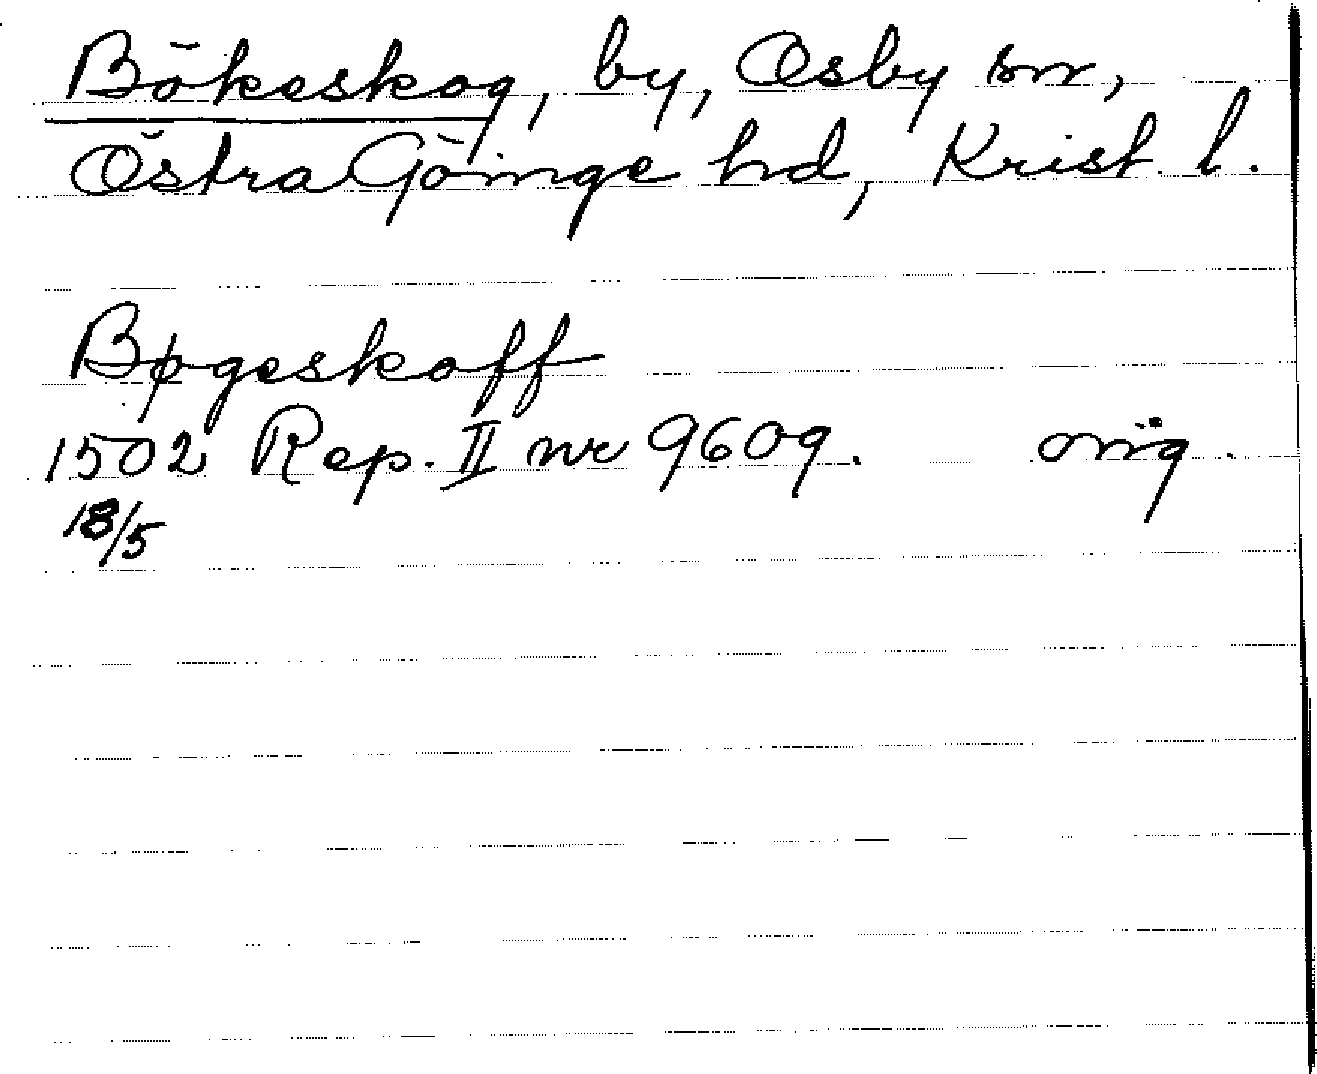 Bökeskog, by, Osby sn,
Östra Göinge hd, Krist. l.
Bøgeskoff
1502 Rep. II nr 9609. orig.
18/5